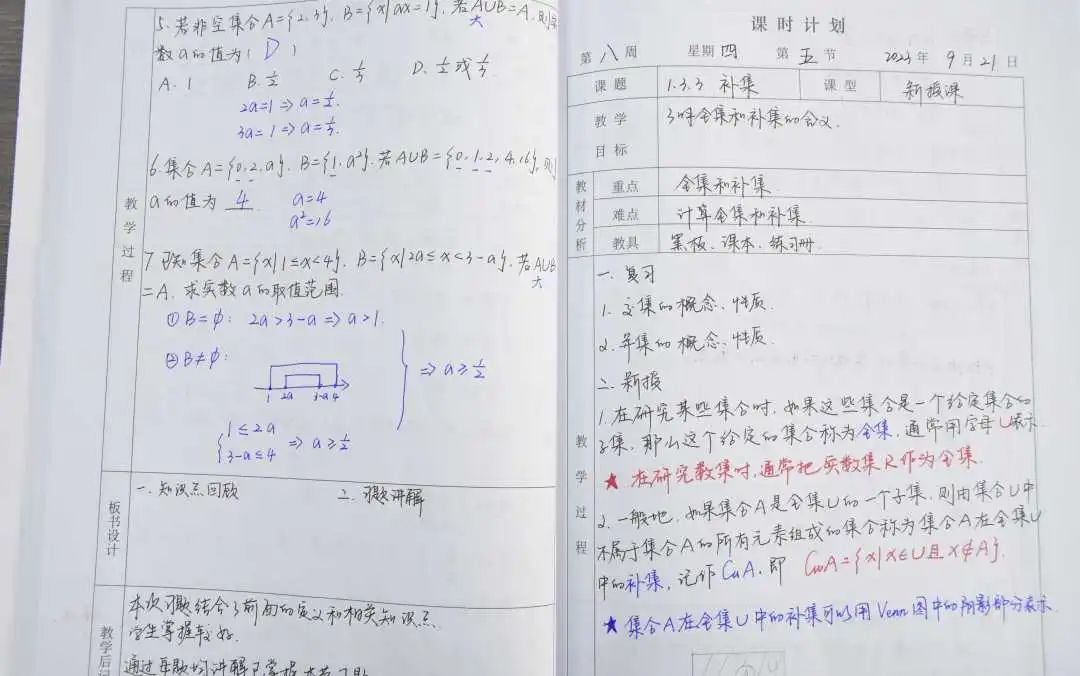 5. 若非空集合A={2,3}, B={x|ax=1}, 若A∪B=A, 则实
大
数a的值为( D )
A. 1 B. 1/2 C. 1/3 D. 1/2或1/3
2a=1 ⇒ a=1/2.
3a=1 ⇒ a=1/3.
6. 集合A={0,2,a}, B={1,a²}, 若A∪B={0,1,2,4,16}, 则
a的值为 4 . a=4
a²=16
7 已知集合A={x|1≤x<4}, B={x|2a≤x<3-a}, 若A∪B
大
=A, 求实数a的取值范围.
① B=∅: 2a>3-a ⇒ a>1.
② B≠∅:
⇒ a≥1/2
1 2a 3-a 4
{1≤2a
3-a≤4 ⇒ a≥1/2
教学过程
一. 知识点回顾 2. 习题讲解
板书设计
本次习题结合了前面的定义和相关知识点
学生掌握较好.
教学后记
课时计划
第八周 星期四 第五节 2023年9月21日
课题 1.3.3 补集 课型 新授课
教学目标 了解全集和补集的含义.
教材分析
重点 全集和补集.
难点 计算全集和补集.
教具 黑板、课本、练习册.
教学过程
一. 复习
1. 交集的概念、性质.
2. 并集的概念、性质.
二. 新授
1. 在研究某些集合时, 如果这些集合是一个给定集合的
子集, 那么这个给定的集合称为全集, 通常用字母U表示.
★ 在研究数集时, 通常把实数集R作为全集.
2. 一般地, 如果集合A是全集U的一个子集, 则由集合U中
不属于集合A的所有元素组成的集合称为集合A在全集U
中的补集, 记作 CuA. 即 CuA={x|x∈U且x∉A}.
★ 集合A在全集U中的补集可以用Venn图中的阴影部分表示.